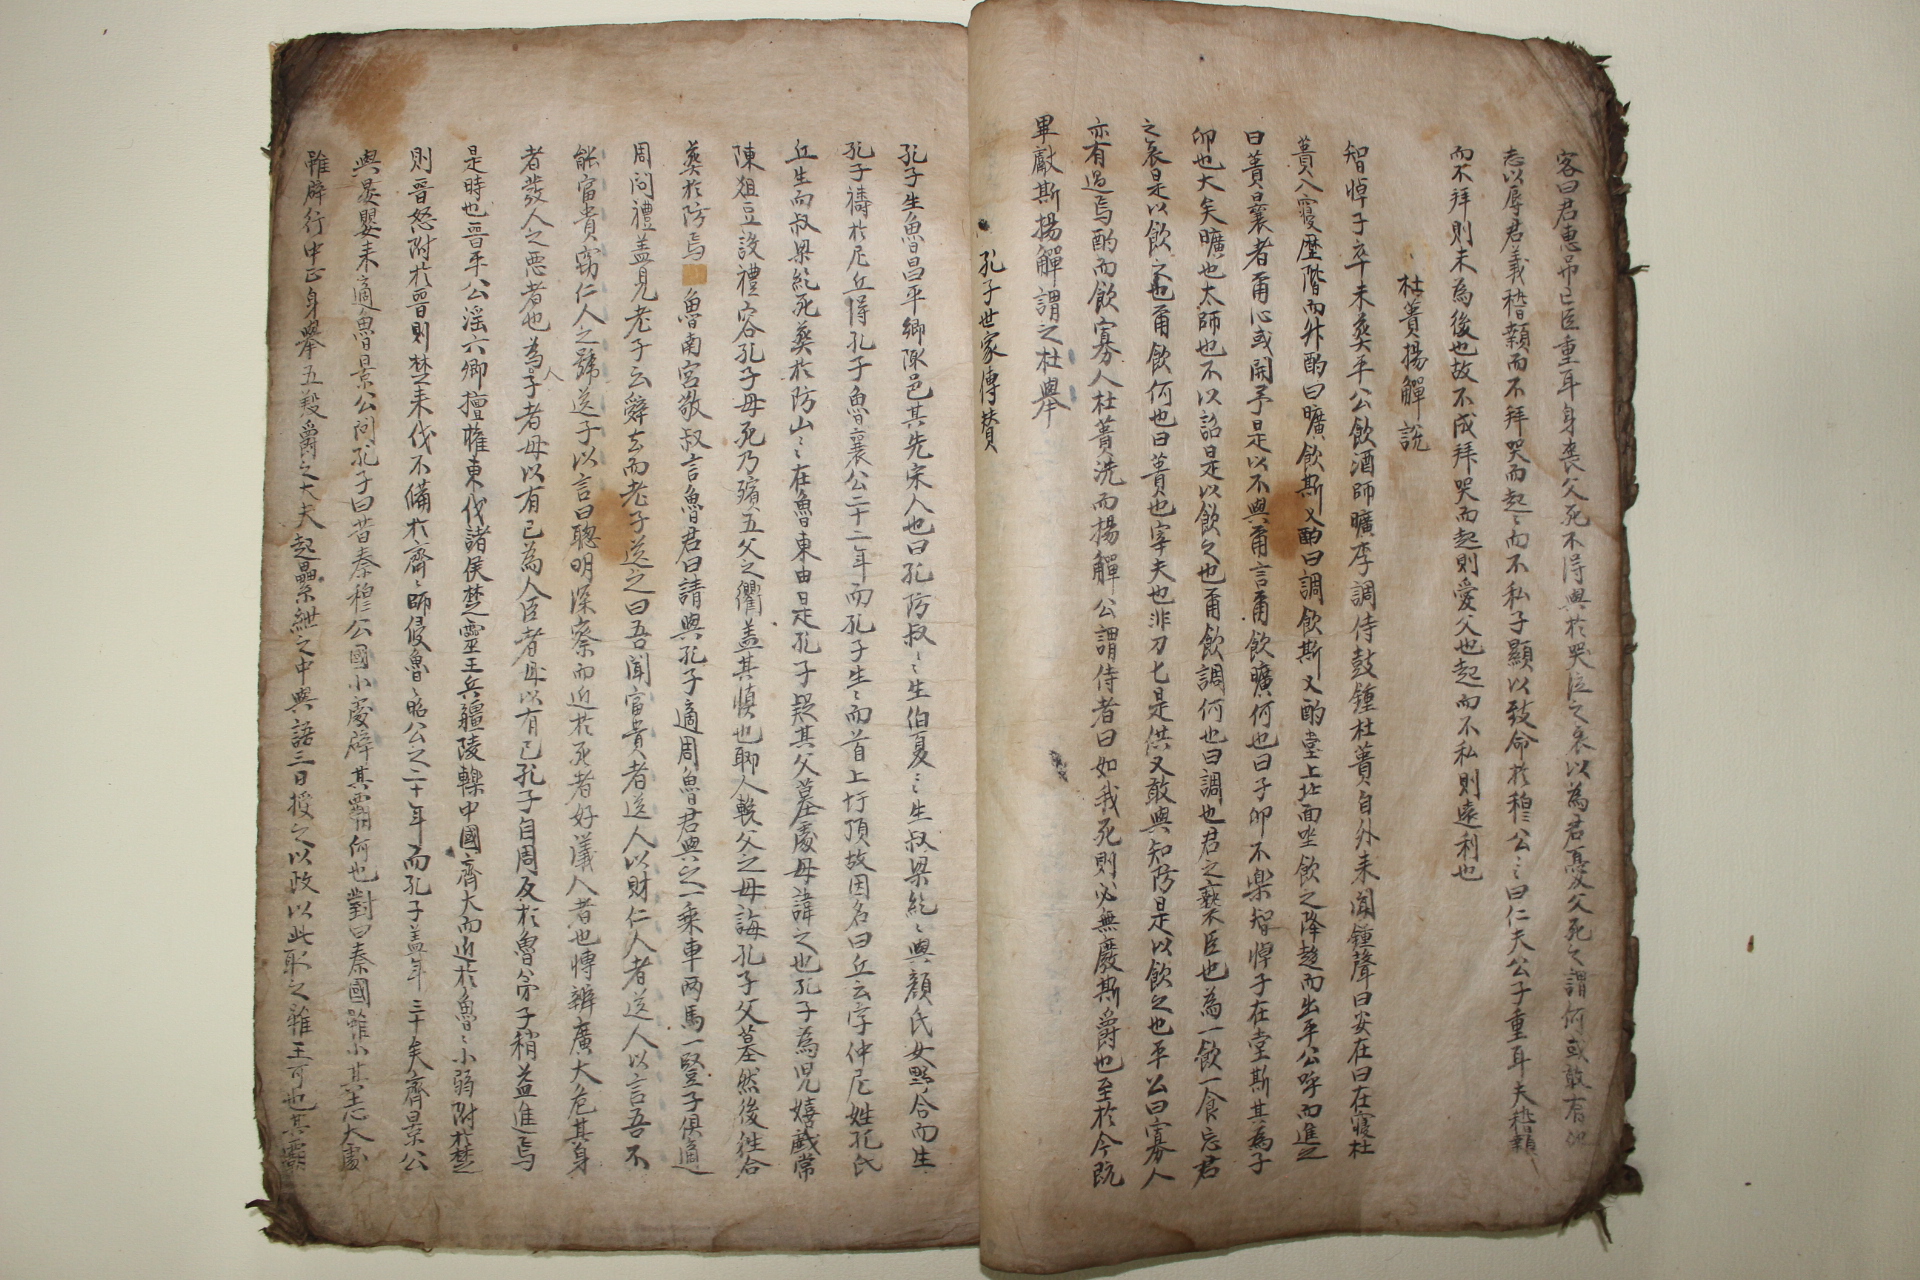 客曰君惠吊亡臣重耳身喪父死不得與於哭泣之哀以為君憂父死之謂何或敢有他
志以辱君義稽顙而不拜哭而起〻而不私子顯以致命於穆公〻曰仁夫公子重耳夫稽顙
而不拜則未為後也故不成拜哭而起則愛父也起而不私則遠利也
杜蕢揚觶說
智悼子卒未葬平公飮酒師曠李調侍鼓鍾杜蕢自外来聞鍾聲曰安在曰在寢杜
蕢入寢歷階而升酌曰曠飮斯又酌曰調飮斯又酌堂上北面坐飮之降趍而出平公呼而進之
曰蕢曩者爾心或開予是以不與爾言爾飮曠何也曰子卯不樂智悼子在堂斯其為子
卯也大矣曠也太師也不以詔是以飮之也爾飮調何也曰調也君之褻臣也為一飮一食忘君
之哀是以飮之也爾飮何也曰蕢也宰夫也非刀匕是供又敢與知防是以飮之也平公曰寡人
亦有過焉酌而飮寡人杜蕢洗而揚觶公謂侍者曰如我死則必無廢斯爵也至於今旣
畢獻斯揚觶謂之杜舉
孔子世家傳賛
孔子生魯昌平鄉陬邑其先宋人也曰孔防叔〻生伯夏〻生叔梁紇〻與顔氏女野合而生
孔子禱於尼丘得孔子魯襄公二十二年而孔子生〻而首上圩頂故因名曰丘云字仲尼姓孔氏
丘生而叔梁紇死葬於防山〻在魯東由是孔子疑其父墓處母諱之也孔子為児嬉戯常
陳俎豆設禮容孔子母死乃殯五父之衢盖其慎也郰人輓父之母誨孔子父墓然後徃合
葬於防焉 魯南宮敬叔言魯君曰請與孔子適周魯君與之一乗車两馬一竪子俱適
周问禮盖見老子云辤去而老子送之曰吾聞富貴者送人以財仁人者送人以言吾不
能富貴窃仁人之號送子以言曰聦明深察而近於死者好議人者也愽辨廣大危其身
者發人之悪者也為人子者母以有己為人臣者母以有己孔子自周反於魯弟子稍益進焉
是時也晋平公滛六卿擅權東伐諸侯楚靈王兵疆陵轢中國齊大而近於魯〻小弱附於楚
則晋怒附於晋則楚来伐不備於齊〻師侵魯〻昭公之二十年而孔子盖年三十矣齊景公
與晏嬰来適魯景公问孔子曰昔秦穆公國小處辟其覇何也對曰秦國雖小其志大處
雖辟行中正身擧五羖爵之大夫起纍紲之中與語三日授之以政以此取之雖王可也其覇